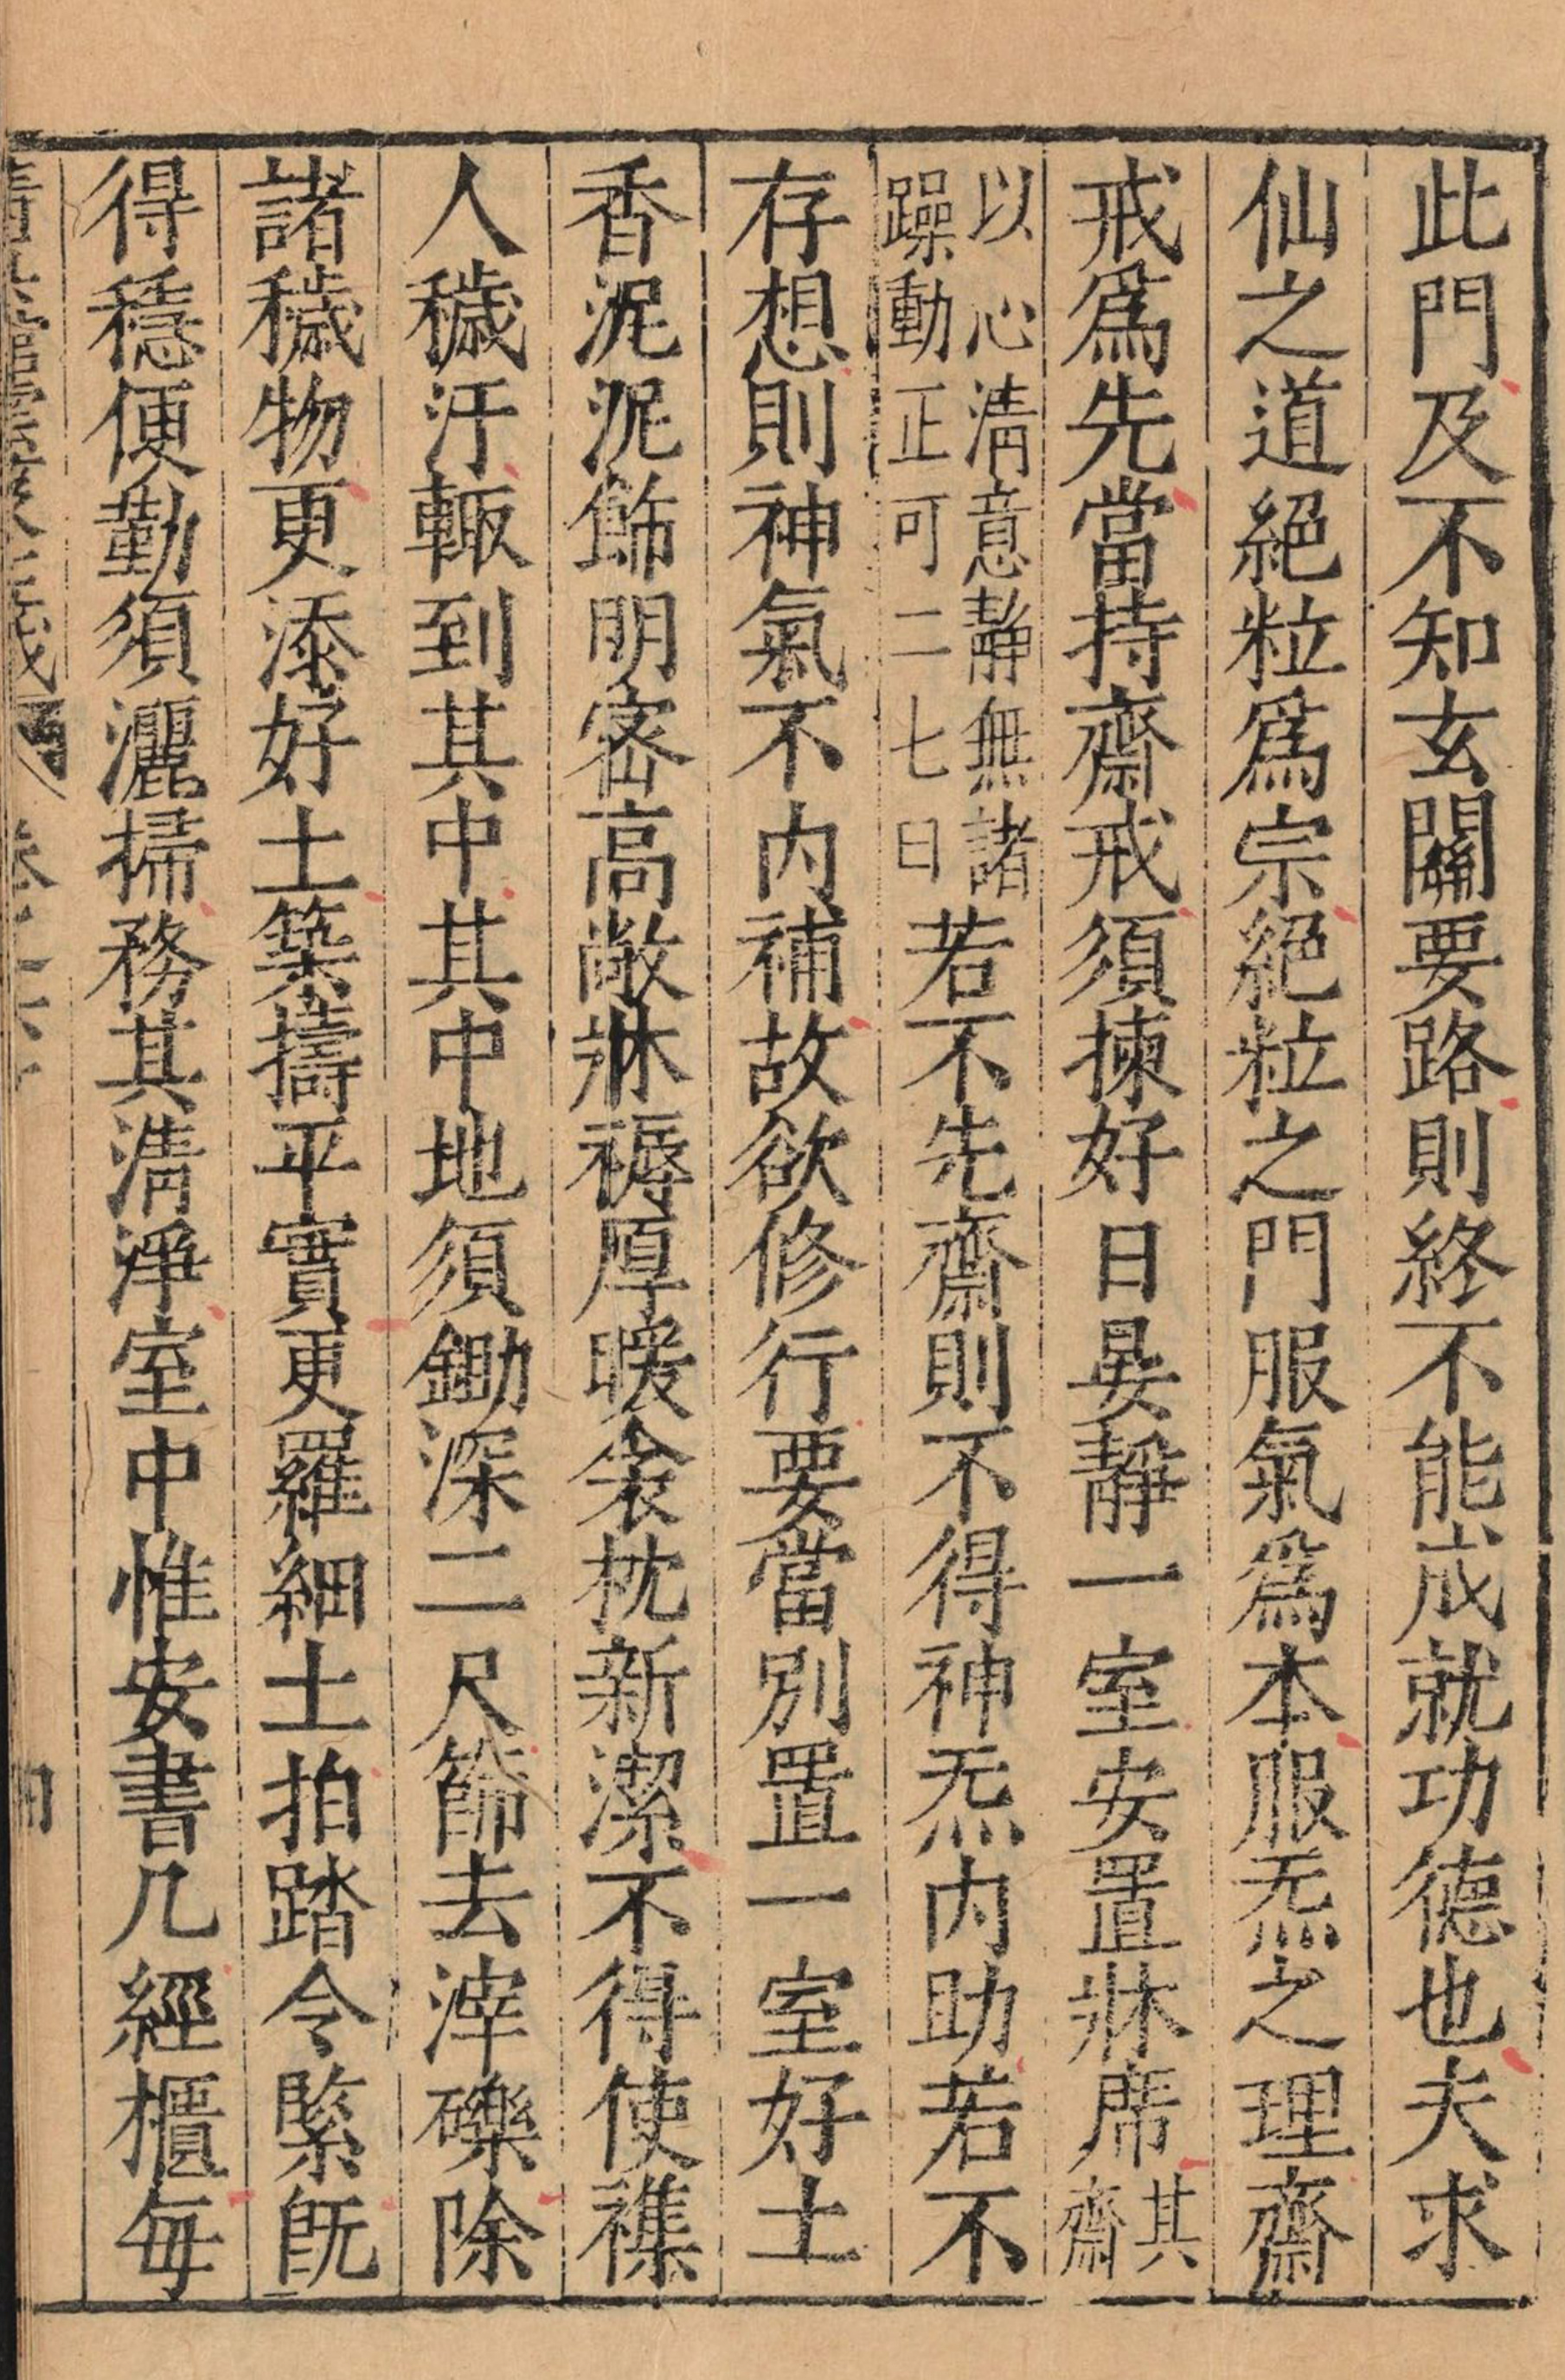 此門及不知玄關要路則終不能成就功德也夫求
仙之道絕粒爲宗絕粒之門服氣爲本服炁之理齋
戒爲先當持齋戒須揀好日晏靜一室安置牀席其齋
以心清意靜無諸
躁動正可二七日
若不先齋則不得神炁内助若不
存想則神氣不内補故欲修行要當别置一室好土
香泥泥飾明密高敞牀褥厚暖衾枕新潔不得使襍
人穢汙輙到其中其中地須鋤深二尺篩去滓礫除
諸穢物更添好土築擣平實更羅細土拍踏令緊旣
得穩便勤須灑掃務其清淨室中惟安書几經櫃每